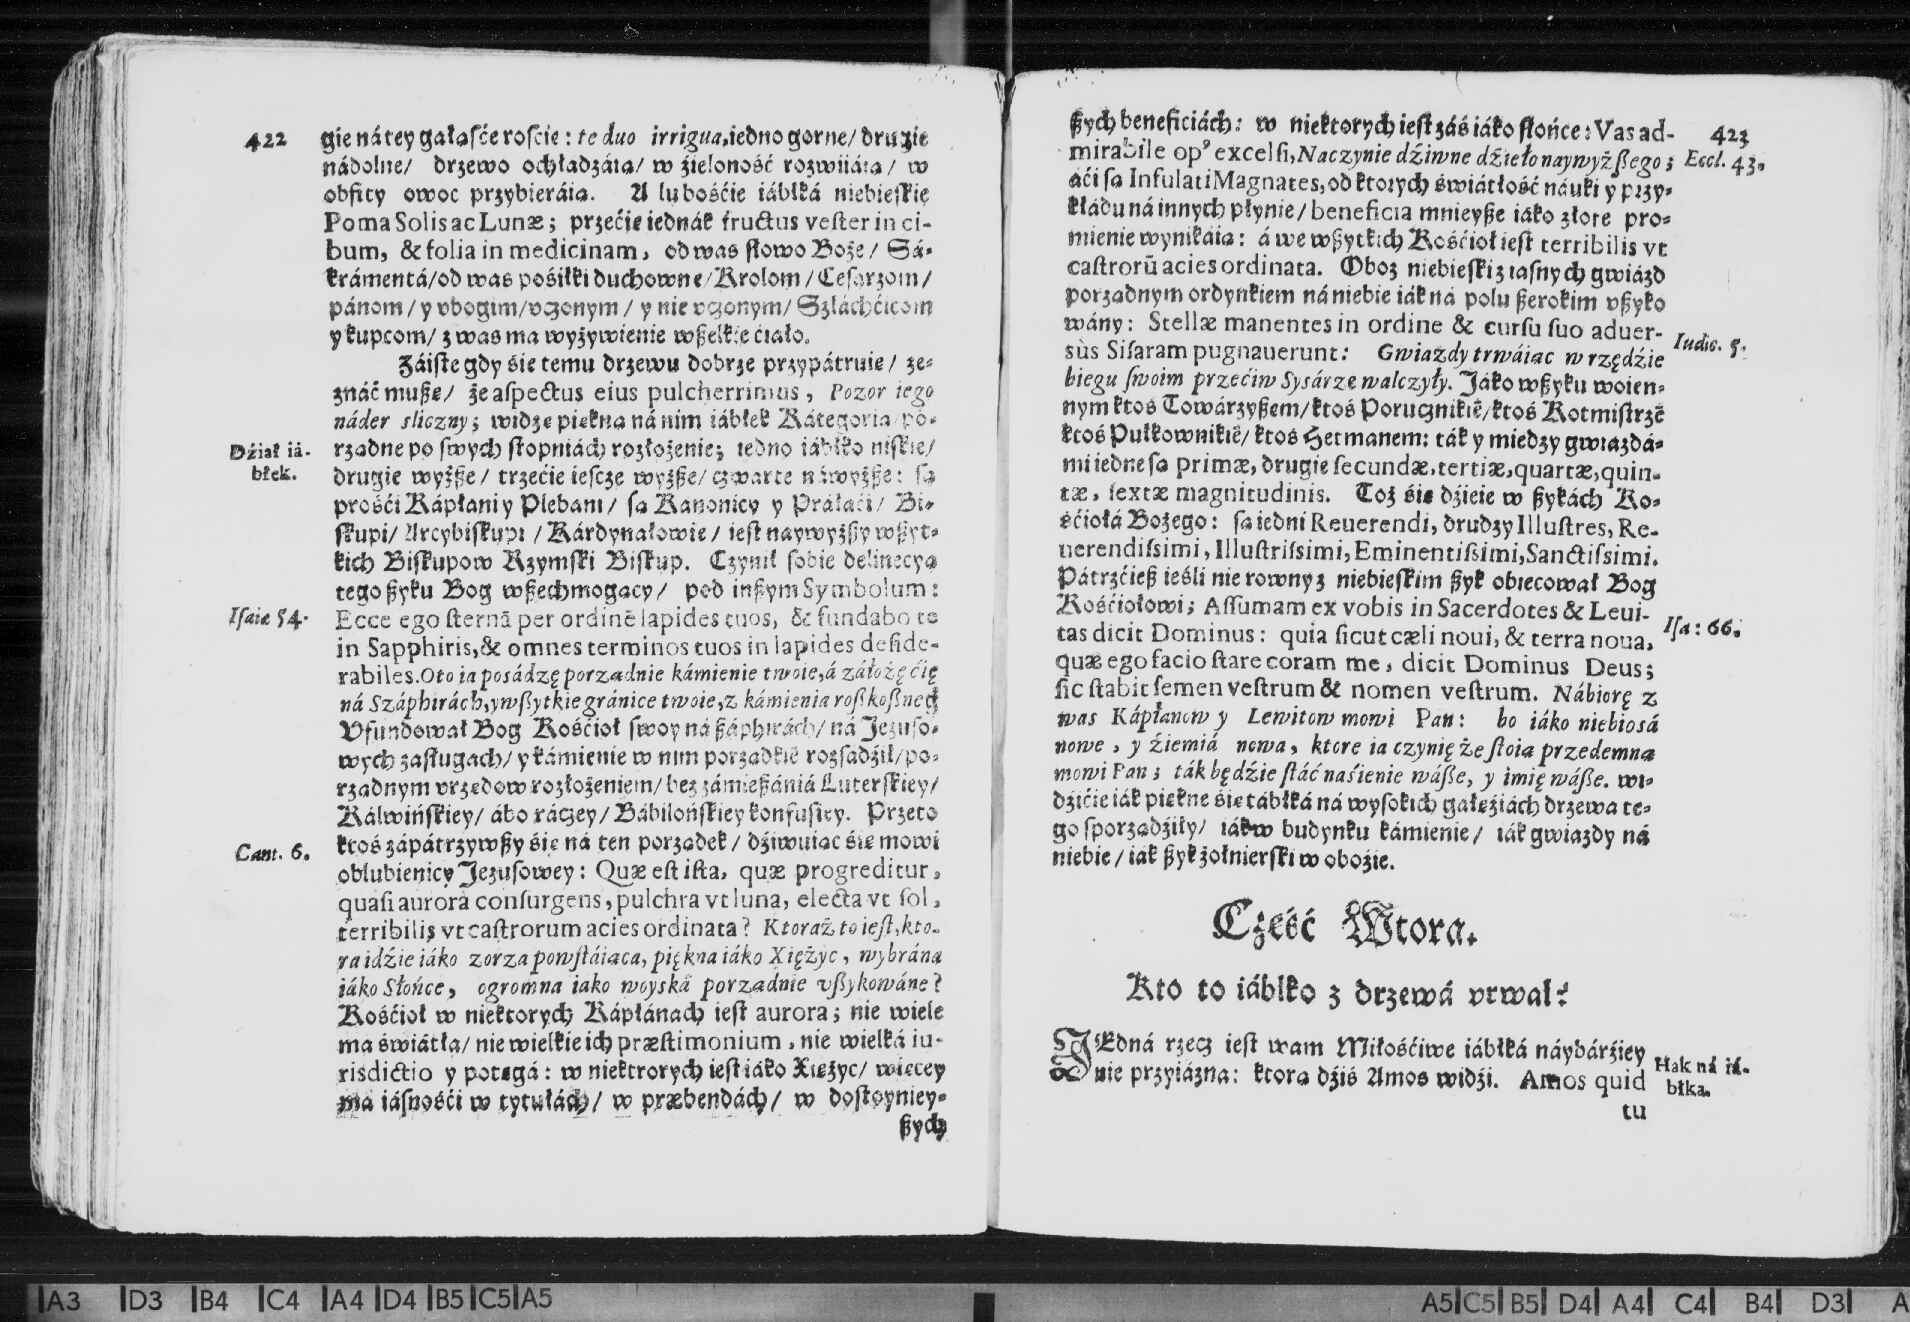 422
gie ná tey gałąśće roście: te duo irrigua, iedno gorne/ drugie
nádolne/ drzewo ochładzáią/ w źieloność rozwiiáią/ w
obfity owoc przybieráią. A lubośćie iábłká niebieskie
Poma Solis ac Lunæ; przećie iednák fructus vester in ci-
bum, & folia in medicinam, od was słowo Boże/ Sá-
krámentá/ od was pośiłki duchowne/ Krolom/ Cesarzom/
pánom/ y vbogim/ vczonym/ y nie vczonym/ Szláchćicom
y kupcom/ z was ma wyżywienie wßelkie ćiało.
Záiste gdy śie temu drzewu dobrze przypátruię/ ze-
znáć muße/ że aspectus eius pulcherrimus, Pozor iego
náder sliczny; widze piękną ná nim iábłek Kátegorią/ po-
rządne po swych stopniách rozłożenie; iedno iábłko niskie/
Dźiał iá-
błek.
drugie wyżße/ trzećie ieszcze wyżße/ czwarte náwyżße: są
prośći Kápłani y Plebani/ są Kanonicy y Práłaći/ Bi-
skupi/ Arcybiskupi/ Kárdynałowie/ iest naywyżßy wßyt-
kich Biskupow Rzymski Biskup. Czynił sobie delinecyą
tego ßyku Bog wßechmogący/ pod inßym Symbolum:
Isaiæ 54.
Ecce ego sternã per ordinẽ lapides tuos, & fundabo te
in Sapphiris, & omnes terminos tuos in lapides deside-
rabiles. Oto ia posádzę porządnie kámienie twoie, á záłożę ćię
ná Száphirách, y wßytkie gránice twoie, z kámienia roßkoßnech
Vfundował Bog Kośćioł swoy ná ßáphirách/ ná Jezuso-
wych zasługach/ y kámienie w nim porządkiẽ rozsadźił/ po-
rządnym vrzędow rozłożeniem/ bez zámießániá Luterskiey/
Kálwińskiey/ ábo ráczey/ Bábilońskiey konfusiey. Przeto
ktoś zápátrzywßy śię ná ten porządek/ dźiwuiąc śie mowi
Cant. 6.
oblubienicy Jezusowey: Quæ est ista, quæ progreditur,
quasi aurora consurgens, pulchra vt luna, electa vt sol,
terribilis vt castrorum acies ordinata? Ktoraż to iest, kto-
ra idźie iáko zorza powstáiąca, piękna iáko Xiężyc, wybrána
iáko Słońce, ogromna iako woyská porządnie vßykowáne?
Kośćioł w niektorych Kápłánach iest aurora; nie wiele
ma świátłá/ nie wielkie ich præstimonium, nie wielká iu-
risdictio y potęgá: w niektrorych iest iáko Xiężyc/ więcey
ma iásnośći w tytułách/ w præbendách/ w dostoyniey-
ßych
423
ßych beneficiách: w niektorych iest záś iáko słońce: Vas ad-
mirabile op⁹ excelsi, Naczynie dźiwne dźieło naywyżßego;
Eccl. 43.
áći są Infulati Magnates, od ktorych świátłość náuki y przy-
kłádu ná innych płynie/ beneficia mnieyße iáko złote pro-
mienie wynikáią: á we wßytkich Kośćioł iest terribilis vt
castrorũ acies ordinata. Oboz niebieski z iasnych gwiázd
porządnym ordynkiem ná niebie iák ná polu ßerokim vßyko
wány: Stellæ manentes in ordine & cursu suo aduer-
sùs Sisaram pugnauerunt: Gwiazdy trwáiąc w rzędźie
Iudic. 5.
biegu swoim przećiw Sysárze walczyły. Jáko w ßyku woien-
nym ktoś Towárzyßem/ ktoś Porucznikiẽ/ ktoś Rotmistrzẽ
ktoś Pułkownikiẽ/ ktoś Hetmanem: ták y miedzy gwiazdá-
mi iedne są primæ, drugie secundæ, tertiæ, quartæ, quin-
tæ, sextæ magnitudinis. Toż śie dźieie w ßykách Ko-
śćiołá Bożego: są iedni Reuerendi, drudzy Illustres, Re-
uerendissimi, Illustrissimi, Eminentissimi, Sanctissimi.
Pátrzćieß ieśli nie rowny z niebieskim ßyk obiecował Bog
Kośćiołowi; Assumam ex vobis in Sacerdotes & Leui-
tas dicit Dominus: quia sicut cæli noui, & terra noua,
Isa: 66.
quæ ego facio stare coram me, dicit Dominus Deus;
sic stabit semen vestrum & nomen vestrum. Nábiorę z
was Kápłanow y Lewitow mowi Pan: bo iáko niebiosá
nowe, y źiemiá nowa, ktore ia czynię że stoią przedemną
mowi Pan; ták będźie stáć naśienie wáße, y imię wáße. wi-
dźićie iák piękne śie iábłká ná wysokich gałęźiách drzewa te-
go sporządźiły/ iák w budynku kámienie/ iák gwiazdy ná
niebie/ iak ßyk żołnierski w oboźie.
Część Wtora.
Kto to iáblko z drzewá vrwał?
JEdná rzecz iest wam Miłośćiwe iábłká náybárźiey
nie przyiázna: ktorą dźiś Amos widźi. Amos quid
Hak ná iá-
błka.
tu
A3 D3 B4 C4 A4 D4 B5 C5 A5
A5 C5 B5 D4 A4 C4 B4 D3 A